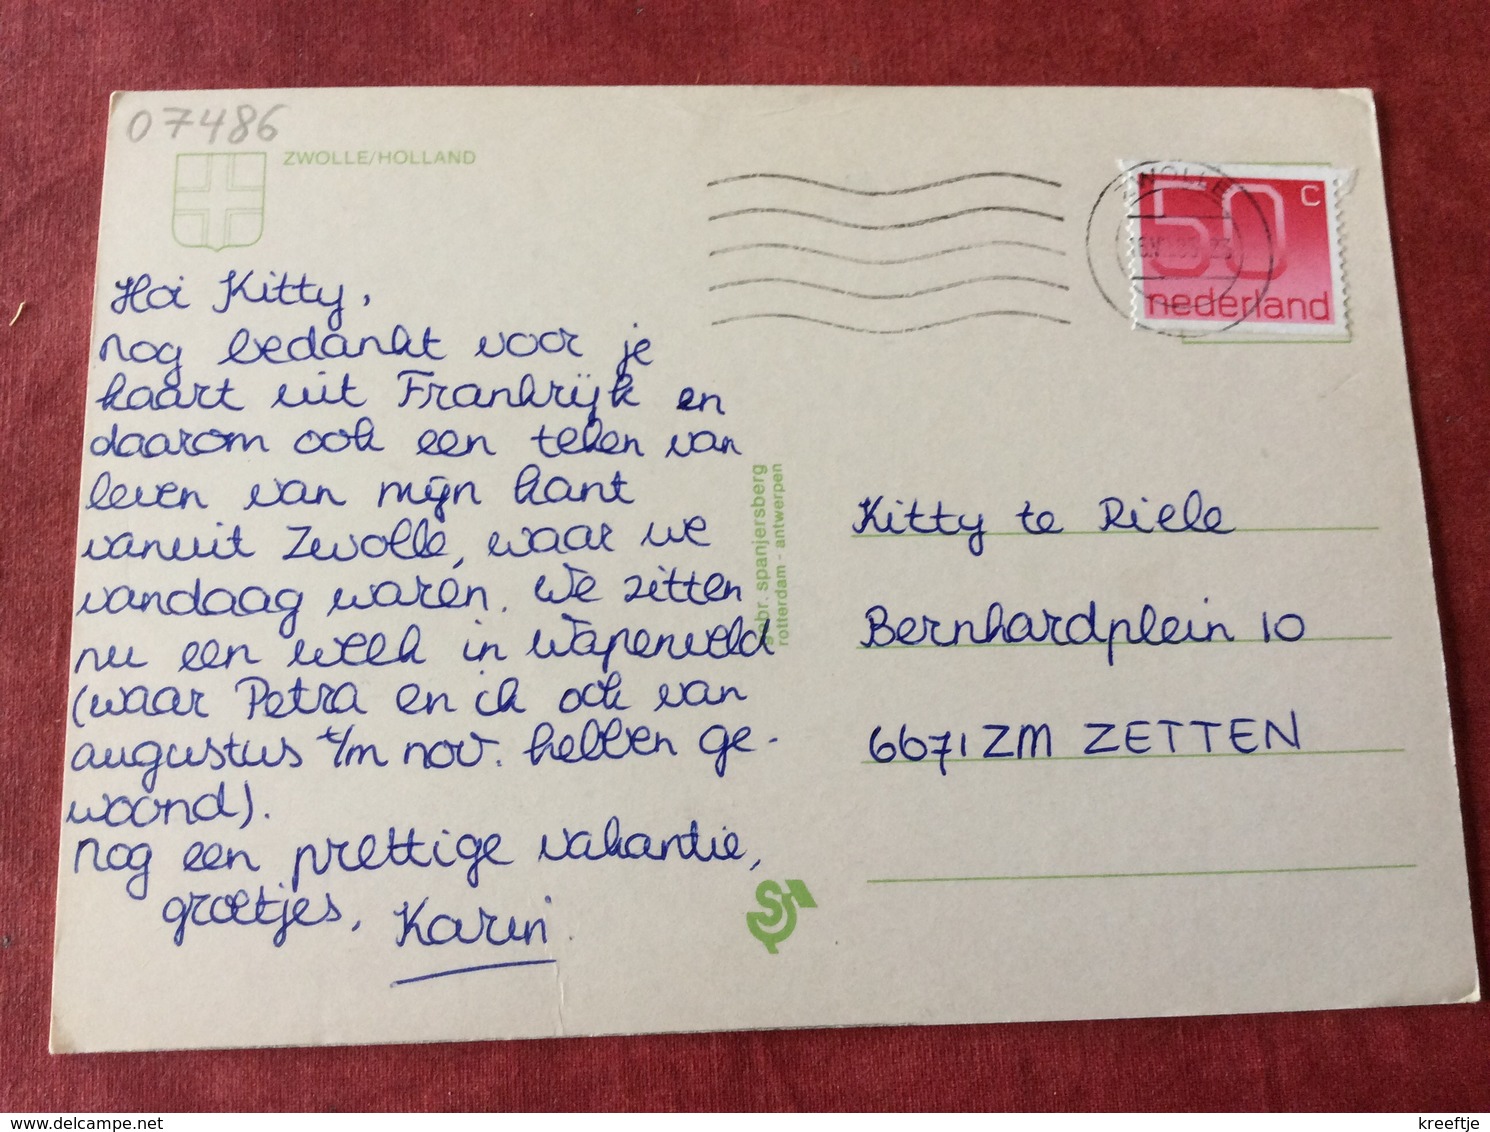 07486
ZWOLLE/HOLLAND
ZWOLLE
50 C
nederland
Hoi Kitty,
nog bedankt voor je
kaart uit Frankrijk en
daarom ook een teken van
leven van mijn kant
vanuit Zwolle, waar we
vandaag waren. We zitten
nu een week in Wapenveld
(waar Petra en ik ook van
augustus t/m nov. hebben ge-
woond).
nog een prettige vakantie,
groetjes, Karin
spanjersberg
rotterdam - antwerpen
Kitty te Riele
Bernhardplein 10
6671 ZM ZETTEN
delcampe.net
kreeftje